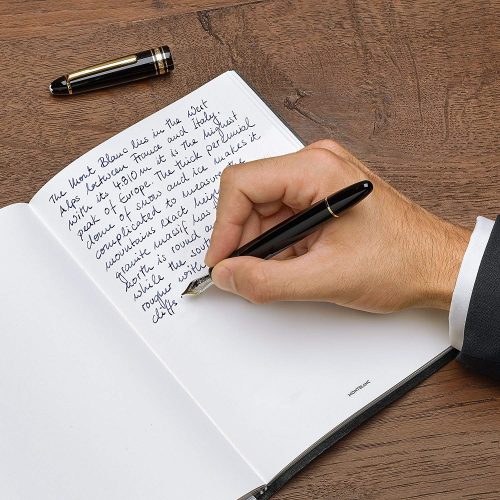 The Mont Blanc lies in the West
Alps between France and Italy.
With its 4810m it is the highest
peak of Europe. The thick perennial
dome of snow and ice makes it
complicated to measure the
mountains exact
granite massif has
North is round
while the
rougher with
cliffs
MONTBLANC